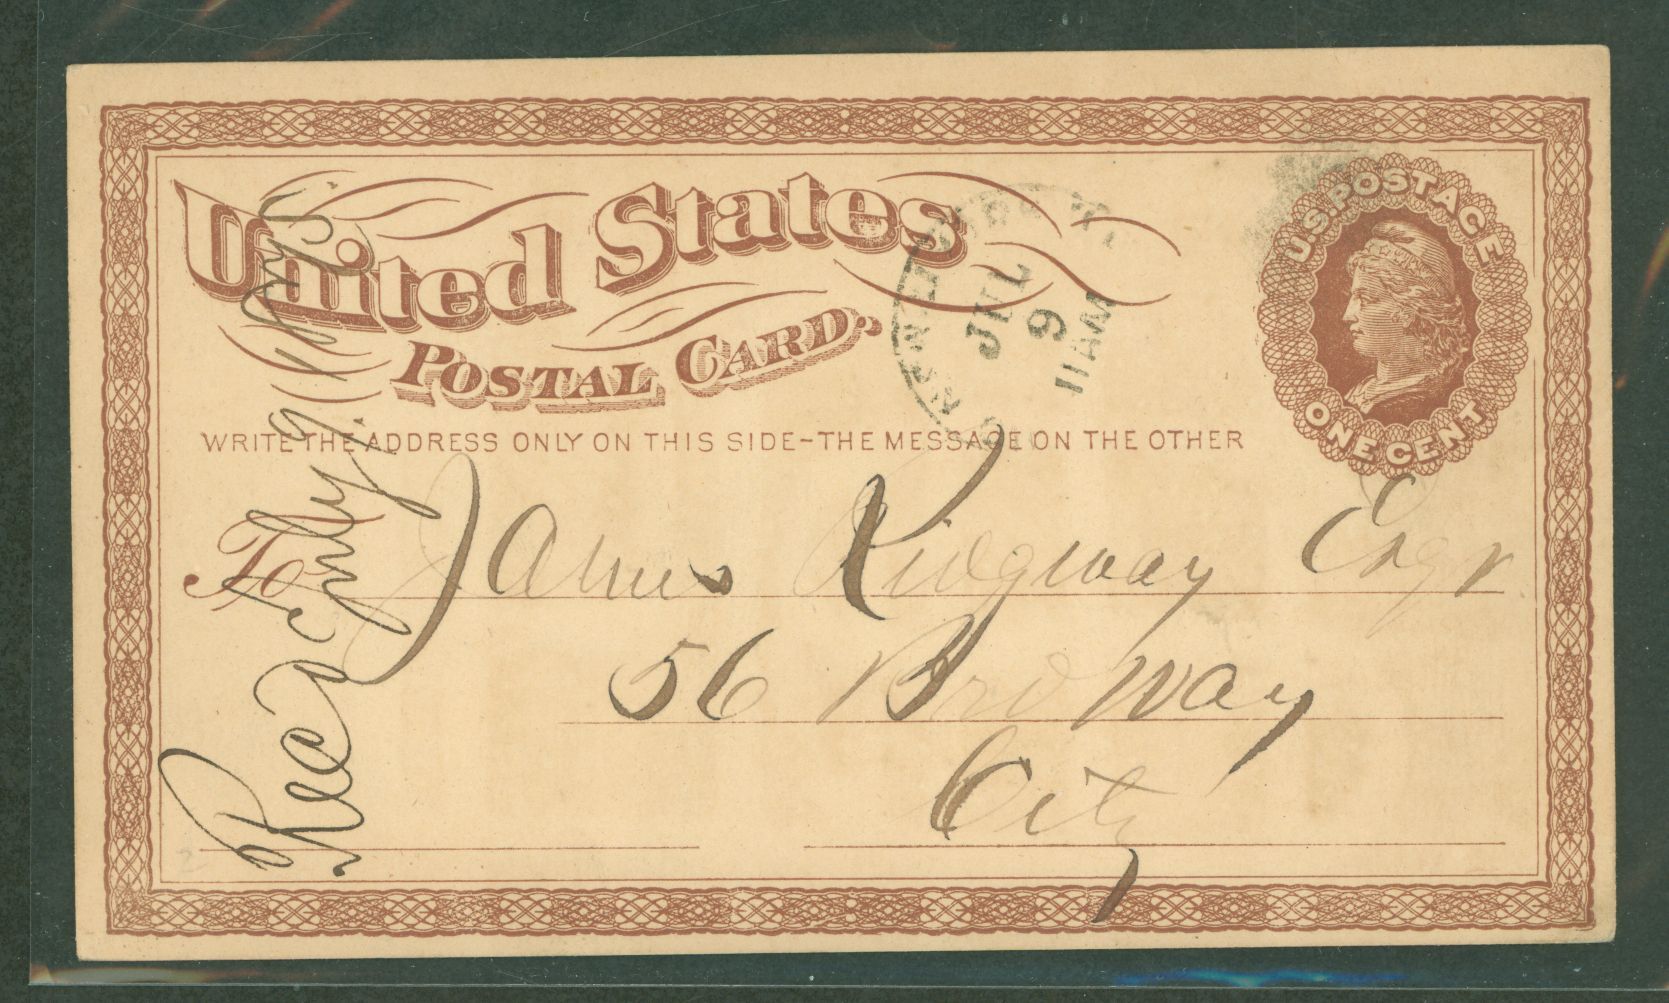 United States
POSTAL CARD.
U.S. POSTAGE
ONE CENT
JUL
9
11 AM
WRITE THE ADDRESS ONLY ON THIS SIDE–THE MESSAGE ON THE OTHER
To James Ridgway Engr
56 Brdway
City
Rec July 9